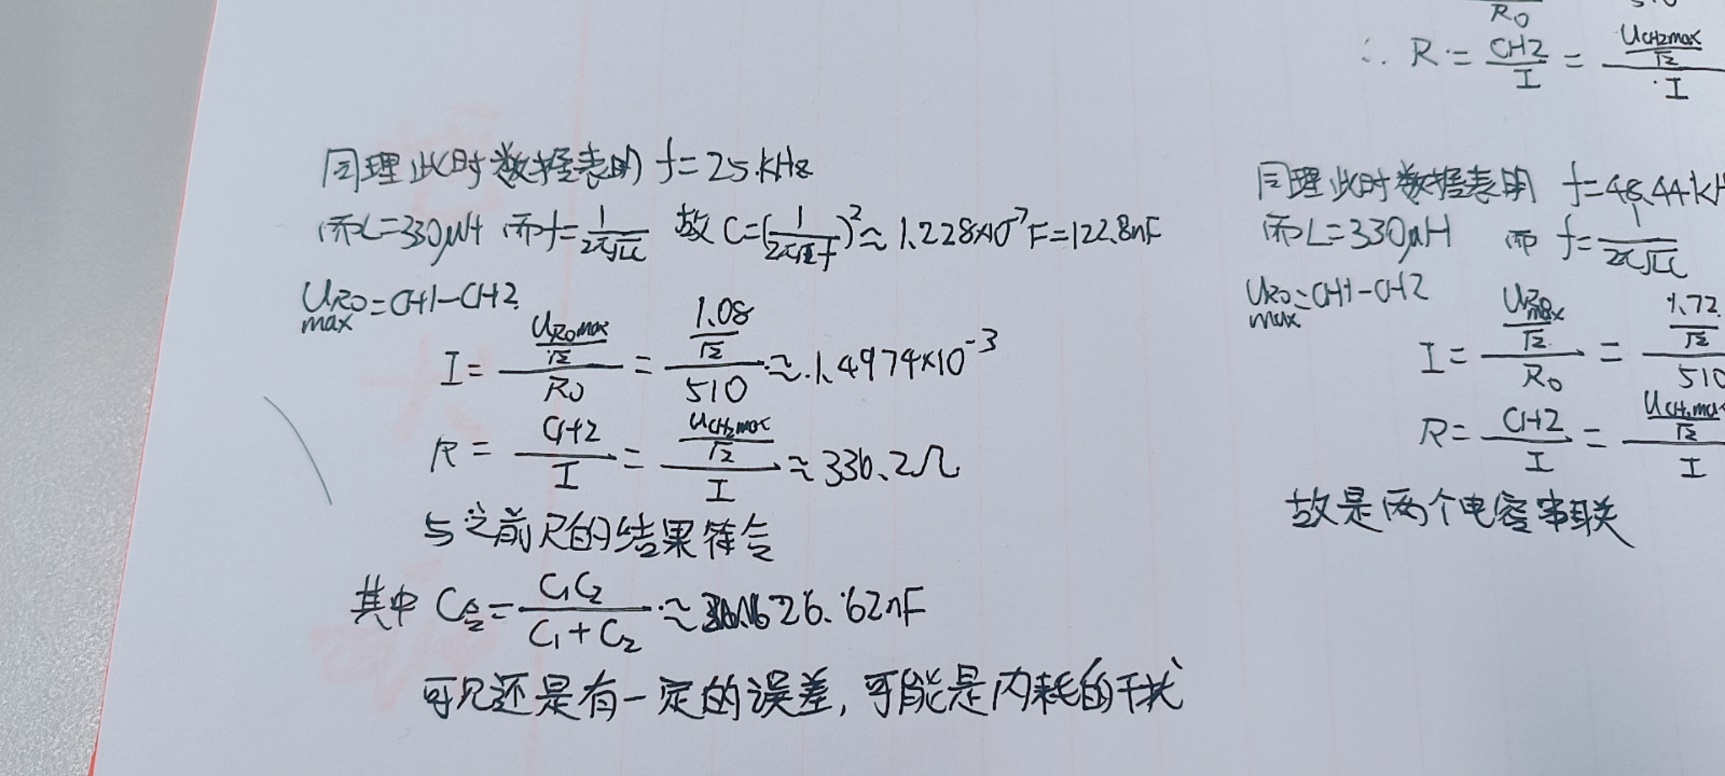 同理此时数据表明 f=25.kHz
而L=330μH 而f=1/(2π√LC) 故 C=(1/(2π√L f))²≈1.228×10⁻⁷F=122.8nF
URO max=CH1-CH2.
I=(UROmax/√2)/R0=(1.08/√2)/510≈1.4974×10⁻³
R=CH2/I=(UCH2max/√2)/I≈336.2Ω
与之前R的结果符合
其中 C合=C1C2/(C1+C2)≈26.62nF
可见还是有一定的误差,可能是内耗的干扰
R0
∴ R=CH2/I=(UCH2max/√2)/I
同理此时数据表明 f=48.44k
而L=330μH 而 f=1/(2π√LC)
URO max=CH1-CH2
I=(UROmax/√2)/R0=(1.72/√2)/510
R=CH2/I=(UCH2max/√2)/I
故是两个电容串联